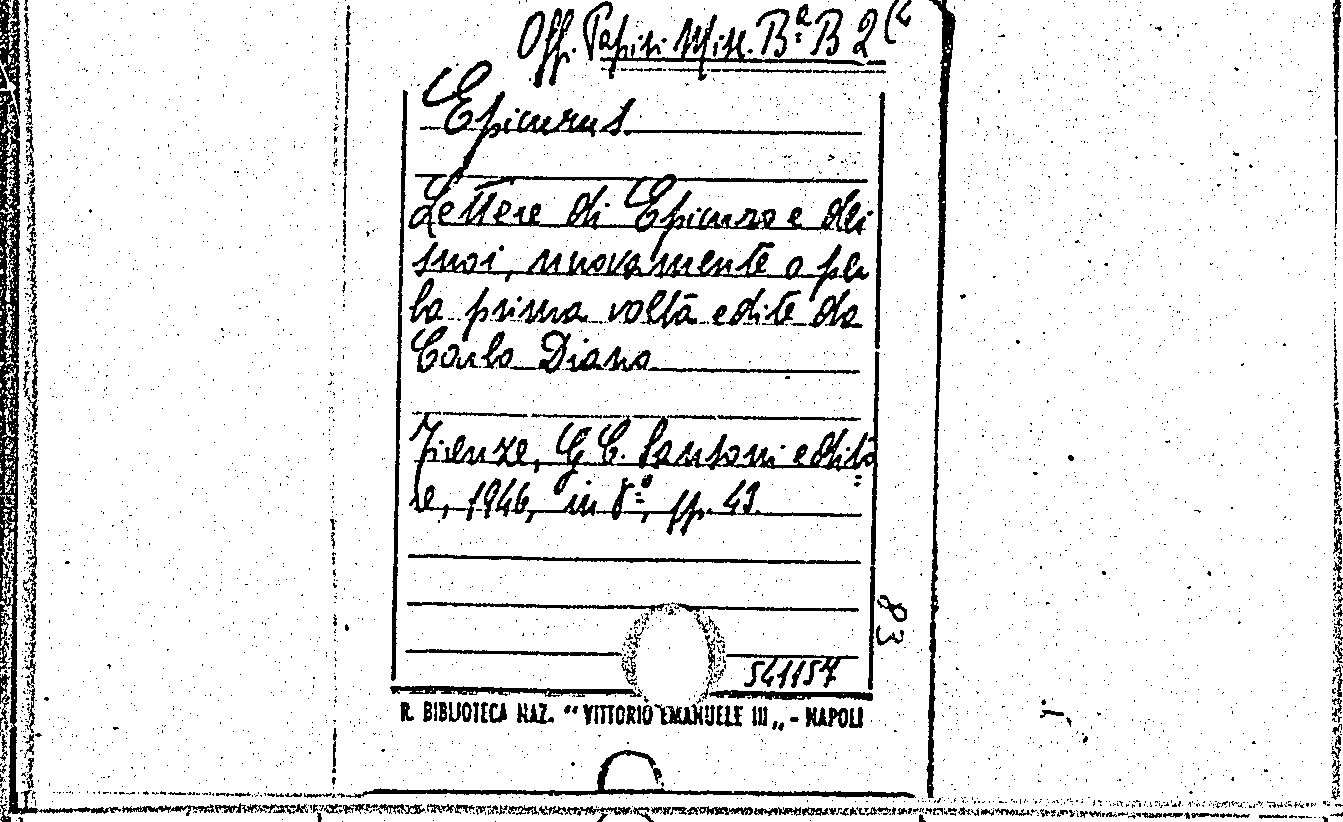 Off. Papiri Misc. Bª B 2 (2
Epicurus
Lettere di Epicuro e dei
suoi, nuovamente o per
la prima volta edite da
Carlo Diano
Firenze, G. C. Sansoni edito=
re, 1946, in 8º, pp. 43.
83
541157
R. BIBLIOTECA NAZ. “ VITTORIO EMANUELE III „ - NAPOLI